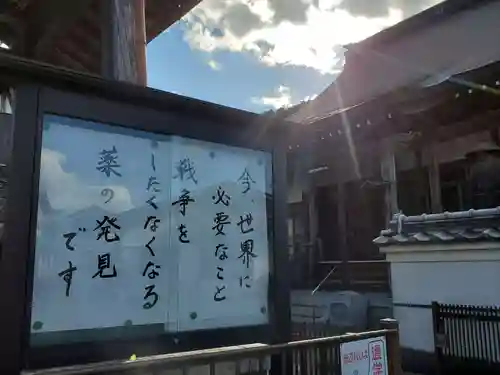 今、世界
必要なこと
戦争を
したくなくなる
薬の発見
です